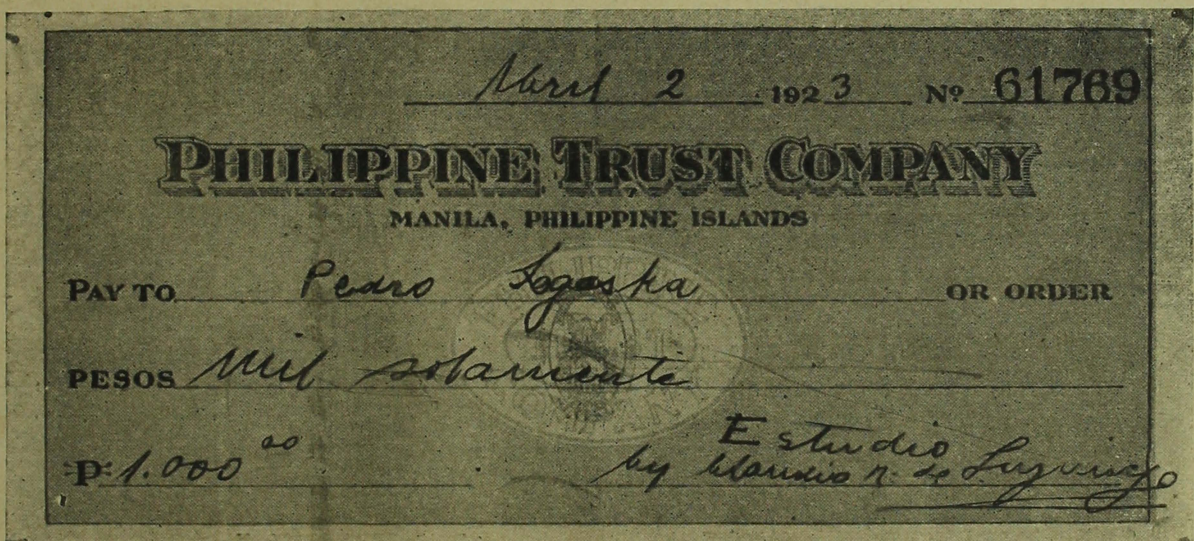 Abril 2 1923 Nº 61769
PHILIPPINE TRUST COMPANY
MANILA, PHILIPPINE ISLANDS
PAY TO Pedro OR ORDER
PESOS Mil solamente
₱ 1.000 00
Estudio
by Claudio R. de Luzuriaga